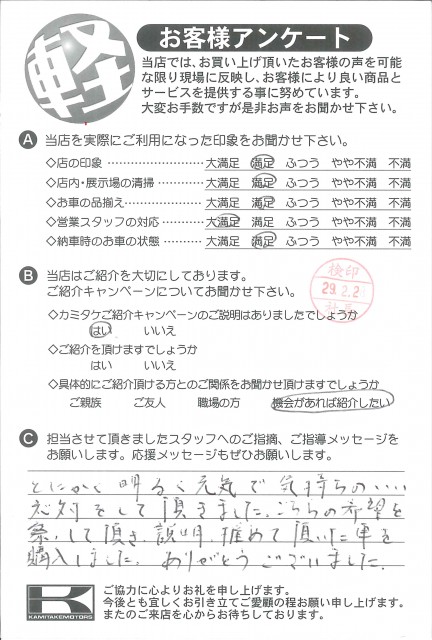 軽
お客様アンケート
当店では、お買い上げ頂いたお客様の声を可能
な限り現場に反映し、お客様により良い商品と
サービスを提供する事に努めています。
大変お手数ですが是非お声をお聞かせ下さい。
A 当店を実際にご利用になった印象をお聞かせ下さい。
◇店の印象 ‥‥‥‥‥‥‥‥ 大満足 満足 ふつう やや不満 不満
◇店内・展示場の清掃‥‥‥‥ 大満足 満足 ふつう やや不満 不満
◇お車の品揃え‥‥‥‥‥‥‥ 大満足 満足 ふつう やや不満 不満
◇営業スタッフの対応‥‥‥‥ 大満足 満足 ふつう やや不満 不満
◇納車時のお車の状態‥‥‥‥ 大満足 満足 ふつう やや不満 不満
B 当店はご紹介を大切にしております。
ご紹介キャンペーンについてお聞かせ下さい。
検印
29.2.2
社長
◇カミタケご紹介キャンペーンのご説明はありましたでしょうか
はい いいえ
◇ご紹介を頂けますでしょうか
はい いいえ
◇具体的にご紹介頂ける方とのご関係をお聞かせ頂けますでしょうか
ご親族 ご友人 職場の方 機会があれば紹介したい
C 担当させて頂きましたスタッフへのご指摘、ご指導メッセージを
お願いします。応援メッセージもぜひお願いします。
とにかく明るく元気で気持ちのいい
応対をして頂きました。こちらの希望を
察して頂き、説明、推めて頂いた車を
購入しました。ありがとうございました。
K
KAMITAKEMOTORS
ご協力に心よりお礼を申し上げます。
今後とも宜しくお引き立てご愛顧の程お願い申し上げます。
またのご来店を心からお待ちしております。